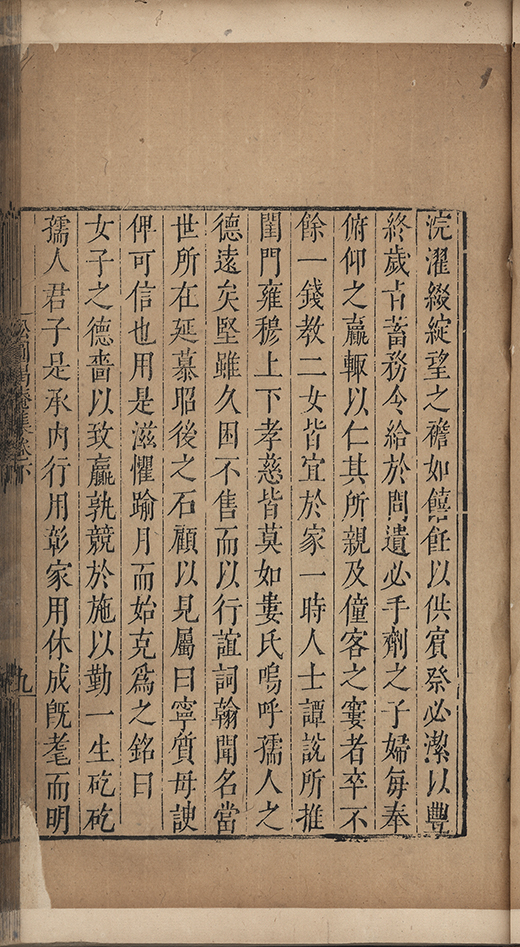 浣濯綴綻望之襜如饎飪以供賓祭必潔以豐
終歲占蓄務令給於問遺必手劑之子婦每奉
俯仰之羸輙以仁其所親及僮客之窶者卒不
餘一錢教二女皆宜於家一時人士譚說所推
閨門雍穆上下孝慈皆莫如婁氏嗚呼孺人之
德遠矣堅雖久困不售而以行誼詞翰聞名當
世所在延慕昭後之石顧以見屬曰寧質毋諛
俾可信也用是滋懼踰月而始克爲之銘曰
女子之德嗇以致羸孰競於施以勤一生矻矻
孺人君子是承內行用彰家用休成旣耄而明
松圓偈庵集卷下
九